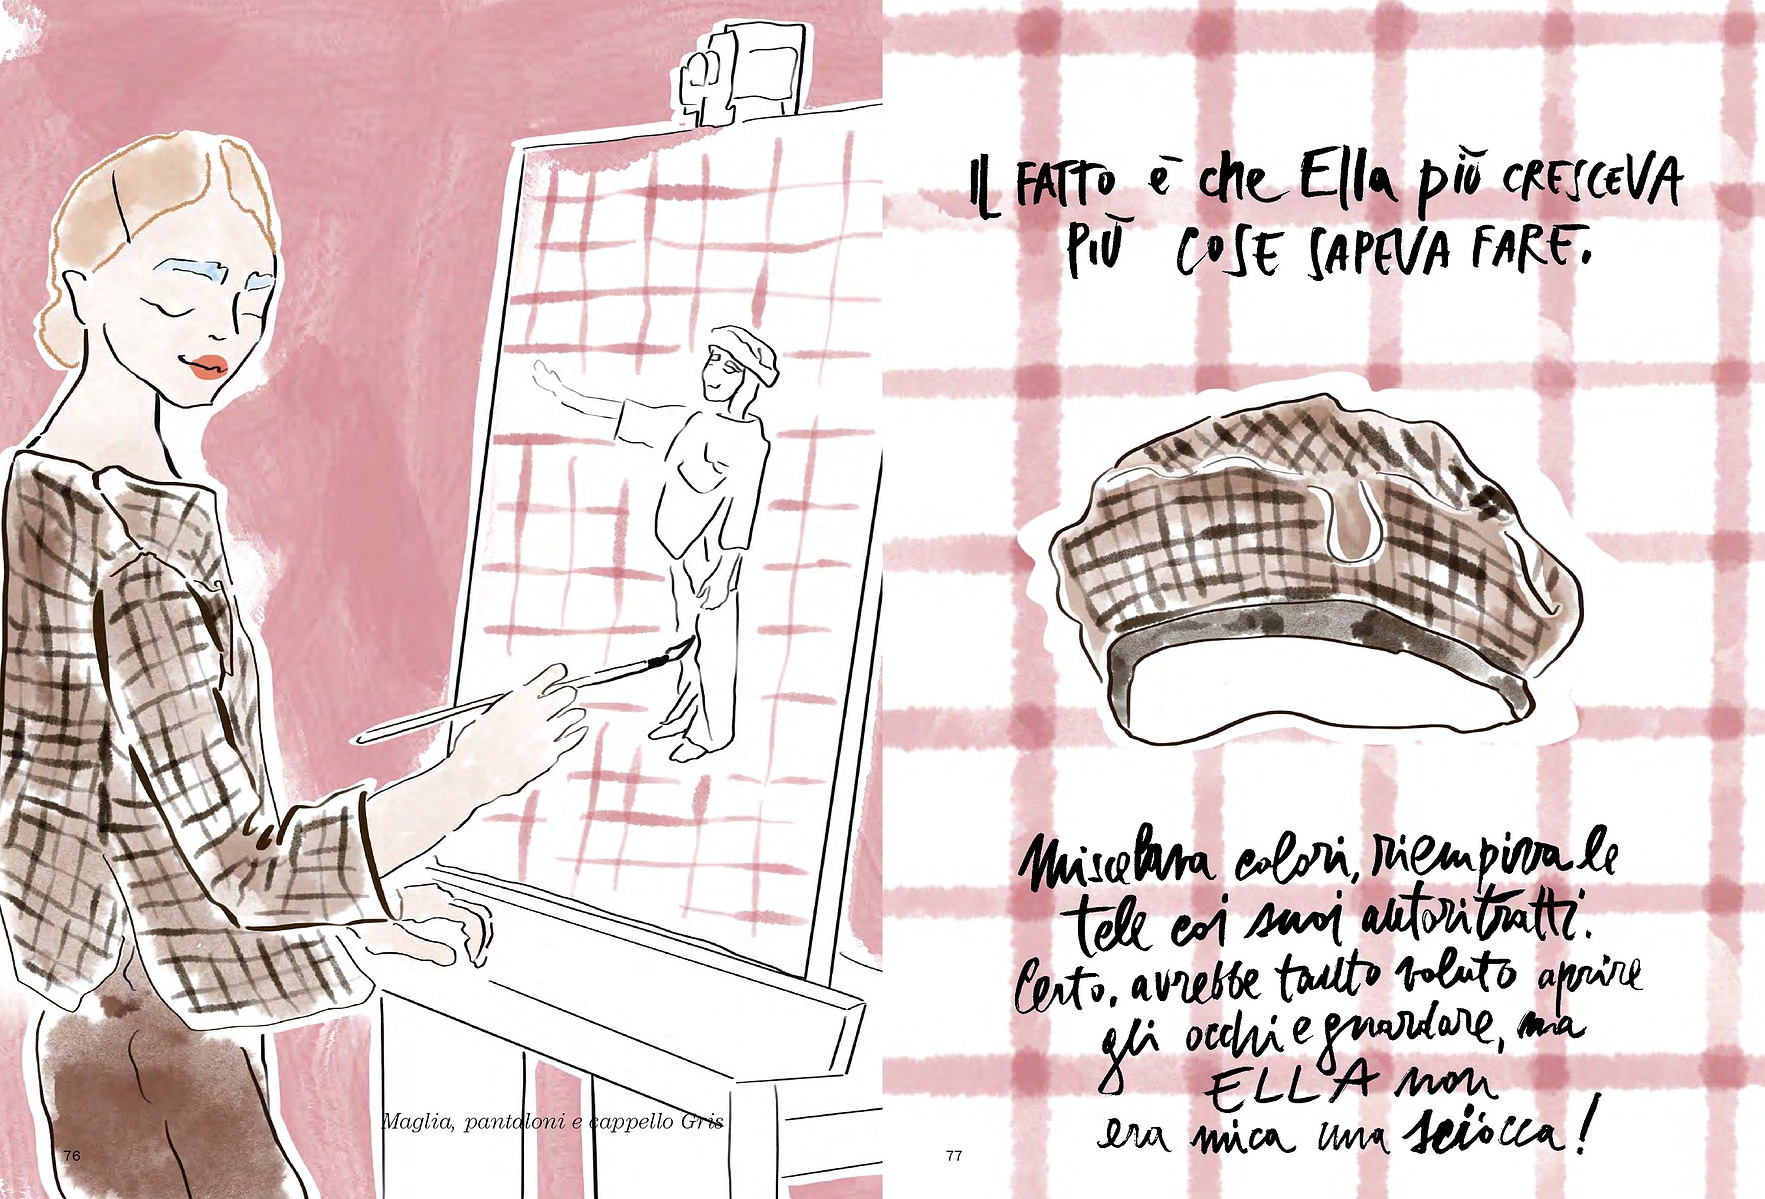 Maglia, pantaloni e cappello Gris
76
IL FATTO è che Ella più CRESCEVA
PIÙ COSE SAPEVA FARE.
Miscelava colori, riempiva le
tele coi suoi autoritratti.
Certo, avrebbe tanto voluto aprire
gli occhi e guardare, ma
ELLA non
era mica una sciocca!
77